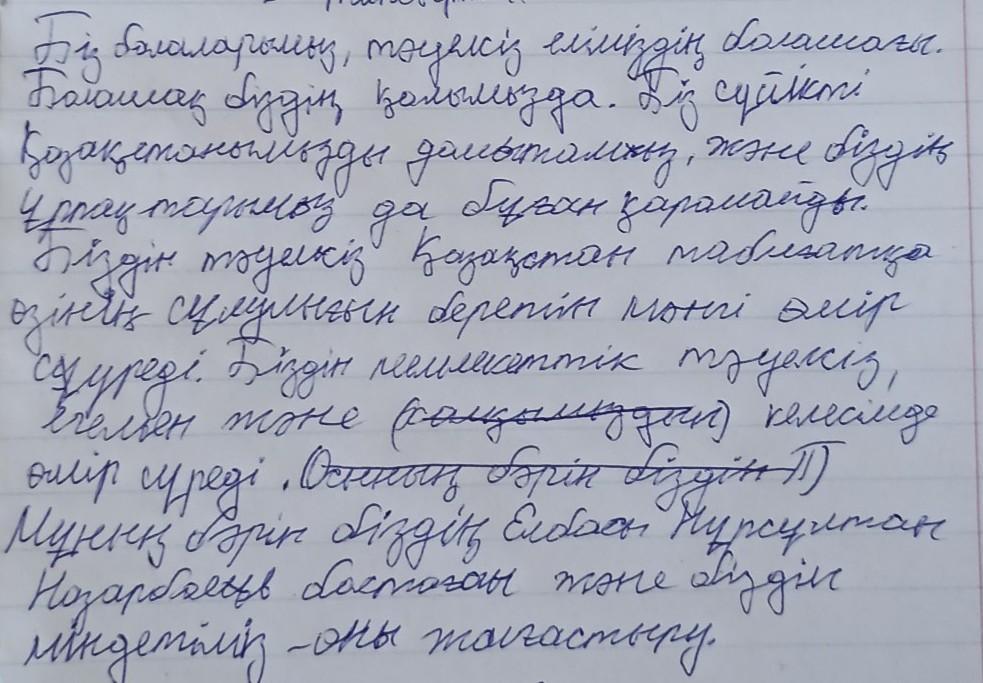 Біз балаларымыз, тәуелсіз еліміздің болашағы.
Болашақ біздің қолымызда. Біз сүйікті
Қазақстанымызды дамытамыз, және біздің
ұрпақтарымыз да бұған қарамайды.
Біздін тәуелсіз Қазақстан табиғатқа
өзінің сұлулығын беретін мәнгі өмір
сүуреді. Біздін мемлекеттік тәуелсіз,
Егемен және (халқымыздын) келесімде
өмір сүреді. Осының бәрін біздін П)
Мұның бәрін біздің Елбасы Нұрсұлтан
Назарбаев бастаған және біздін
міндетіміз - оны жалғастыру.